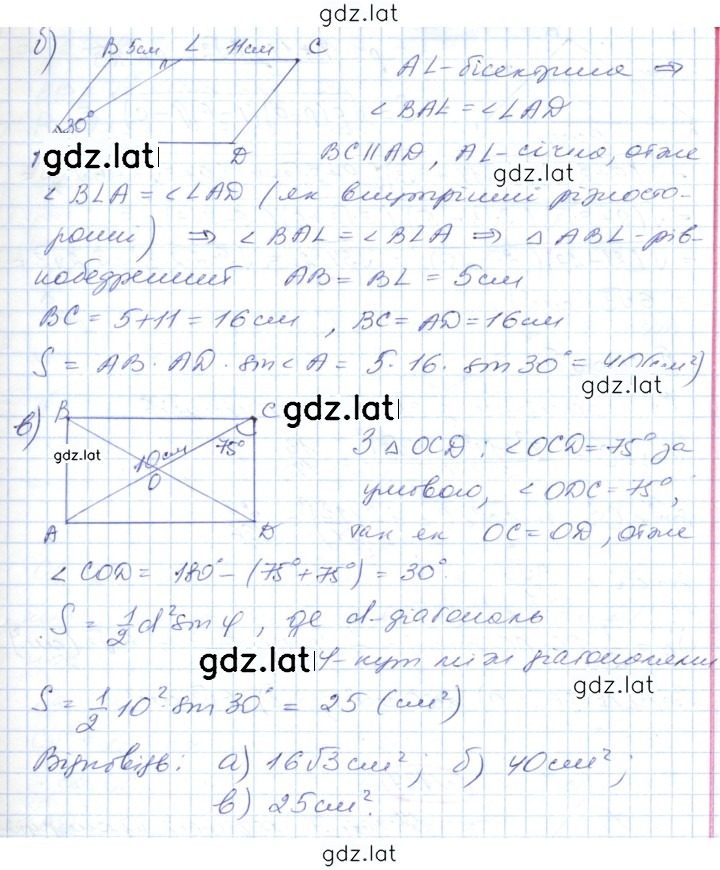 gdz.lat
б)
B 5см L 11см C
30°
D
AL-бісектриса ⇒
∠BAL = ∠LAD
BC||AD, AL-січна, отже
gdz.lat
gdz.lat
∠BLA = ∠LAD (як внутрішні різносто-
ронні) ⇒ ∠BAL = ∠BLA ⇒ △ABL-рів-
нобедрений AB = BL = 5см
BC = 5+11 = 16см , BC = AD = 16см
S = AB · AD · sin∠A = 5 · 16 · sin 30° = 40(см²)
gdz.lat
gdz.lat
в)
B C
gdz.lat
10см
75°
O
A D
З △OCD : ∠OCD = 75° за
умовою, ∠ODC = 75°,
так як OC = OD, отже
∠COD = 180° - (75° + 75°) = 30°.
S = 1/2 d² sin φ , де d-діагональ
gdz.lat
φ-кут між діагоналями
gdz.lat
S = 1/2 10² · sin 30° = 25 (см²)
Відповідь: а) 16√3 см²; б) 40 см²;
в) 25 см².
gdz.lat